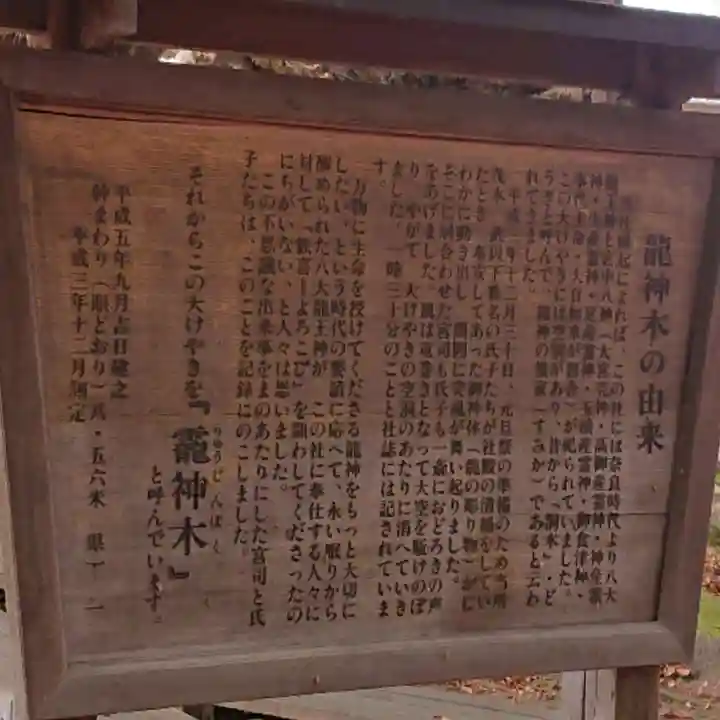 龍神木の由来
社縁起によれば、この社には奈良時代より八大
龍王神と宮中八神(大宮売神・高御産霊神・神産霊
神・生産霊神・足産霊神・玉積産霊神・御食津神・
事代主命・大直毘神が祀られていました。
この大けやきには空洞があり、昔から「洞木」・ど
うぎと呼んで、龍神の棲家(すみか)であると云わ
れてきました。
平成 年十二月三十日、元旦祭の準備のため当所
茂木 武以下数名の氏子たちが社殿の清掃をしてい
たとき 奉安してあった御神体(龍の彫り物)がに
わかに動き出し 瞬間に突風が舞い起りました。
そこに居合わせた宮司も氏子も一斉におどろきの声
をあげました。風は竜巻きとなって大空を駆けのぼ
り、やがて 大けやきの空洞のあたりに消へていき
ました。一時三十分のことと社誌には記されていま
す。
万物に生命を授けてくださる龍神をもっと大切に
したい、という時代の要請に応へて、永い眠りから
醒められた八大龍王神が、この社に奉仕する人々に
対して「歓喜ーよろこび」を顕わしてくださったの
にちがいない、と人々は思いました。
この不思議な出来事をまのあたりにした宮司と氏
子たちは、このことを記録にのこしました。
それからこの大けやきを『龗神木』
りゅうじんぼく
と呼んでいます。
平成五年九月吉日建之
幹まわり(眼どおり)八・五六米
平成三年十二月測定